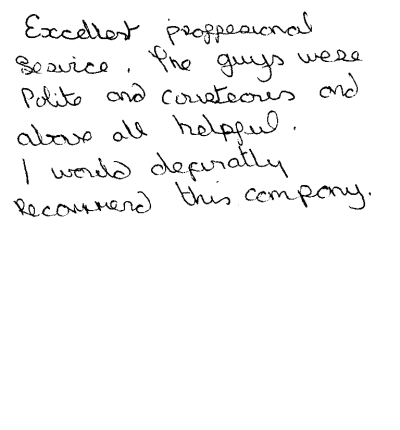 Excellent proffesional
Service. The guys were
Polite and cursteours and
above all helpful.
I would definatly
Recommend this company.